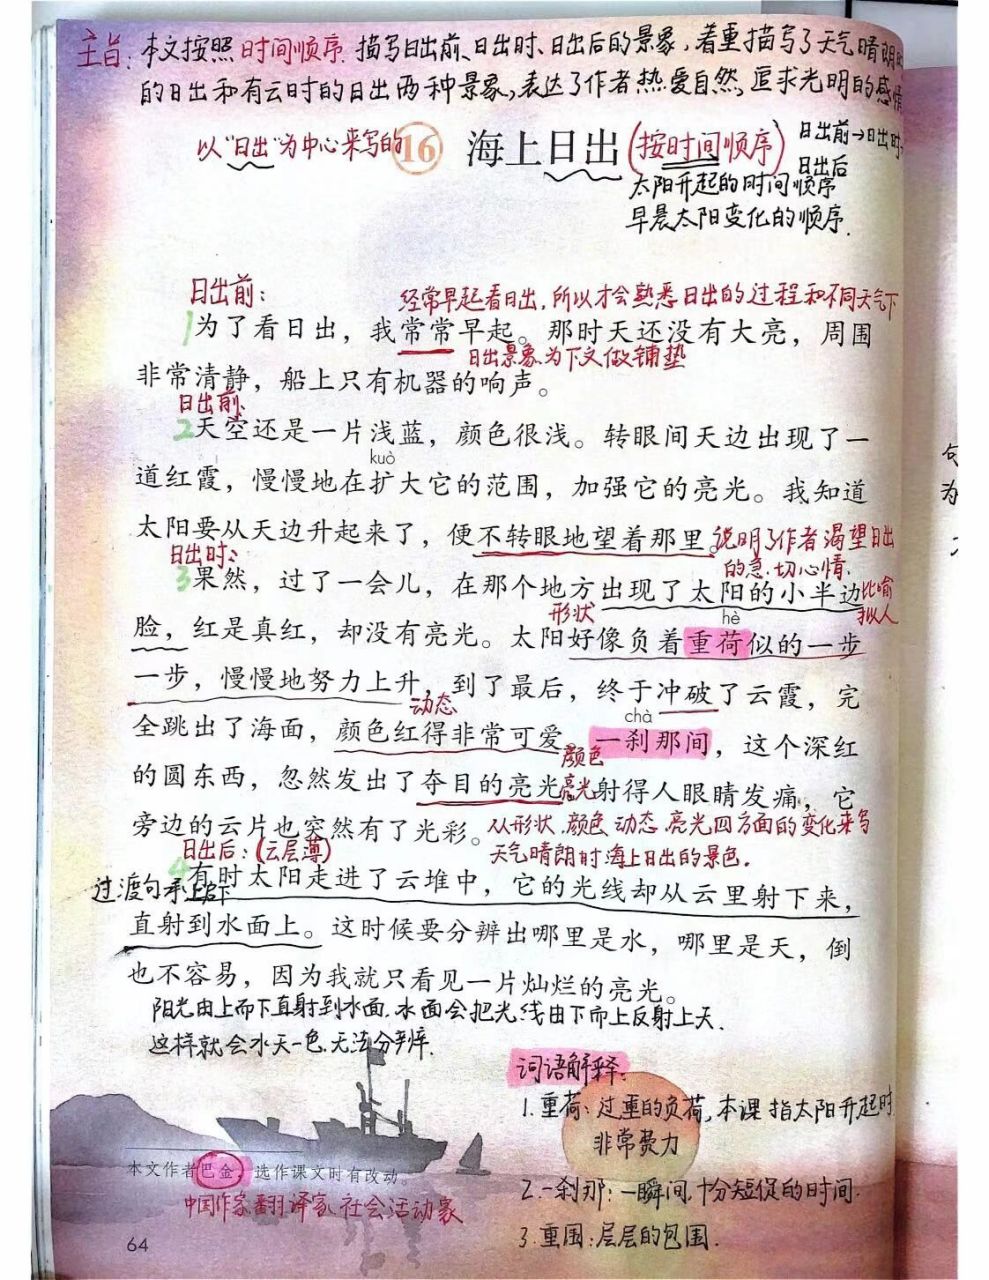 主旨：本文按照时间顺序.描写日出前、日出时、日出后的景象，着重描写了天气晴朗时
的日出和有云时的日出两种景象，表达了作者热爱自然，追求光明的感情
以"日出"为中心来写的 16 海上日出 (按时间顺序) 日出前→日出时→
日出后
太阳升起的时间顺序
早晨太阳变化的顺序.
日出前：
经常早起看日出，所以才会熟悉日出的过程和不同天气下
1为了看日出，我常常早起。那时天还没有大亮，周围
日出景象为下文做铺垫
非常清静，船上只有机器的响声。
日出前：
2天空还是一片浅蓝，颜色很浅。转眼间天边出现了一
kuò
道红霞，慢慢地在扩大它的范围，加强它的亮光。我知道
太阳要从天边升起来了，便不转眼地望着那里。说明了作者渴望日出
的急切心情.
日出时：
3果然，过了一会儿，在那个地方出现了太阳的小半边比喻
形状 hè 拟人
脸，红是真红，却没有亮光。太阳好像负着重荷似的一步
一步，慢慢地努力上升，到了最后，终于冲破了云霞，完
动态 chà
全跳出了海面，颜色红得非常可爱。一刹那间，这个深红
颜色
的圆东西，忽然发出了夺目的亮光，亮光射得人眼睛发痛，它
旁边的云片也突然有了光彩。从形状.颜色.动态.亮光四方面的变化来写
天气晴朗时海上日出的景色.
日出后：(云层薄)
4有时太阳走进了云堆中，它的光线却从云里射下来，
过渡句承上启下
直射到水面上。这时候要分辨出哪里是水，哪里是天，倒
也不容易，因为我就只看见一片灿烂的亮光。
阳光由上而下直射到水面.水面会把光线由下而上反射上天.
这样就会水天一色.无法分辨.
词语解释：
1.重荷：过重的负荷，本课指太阳升起时
非常费力
2.一刹那：一瞬间.十分短促的时间.
3.重围：层层的包围.
本文作者巴金，选作课文时有改动。
中国作家.翻译家.社会活动家
64
句
为